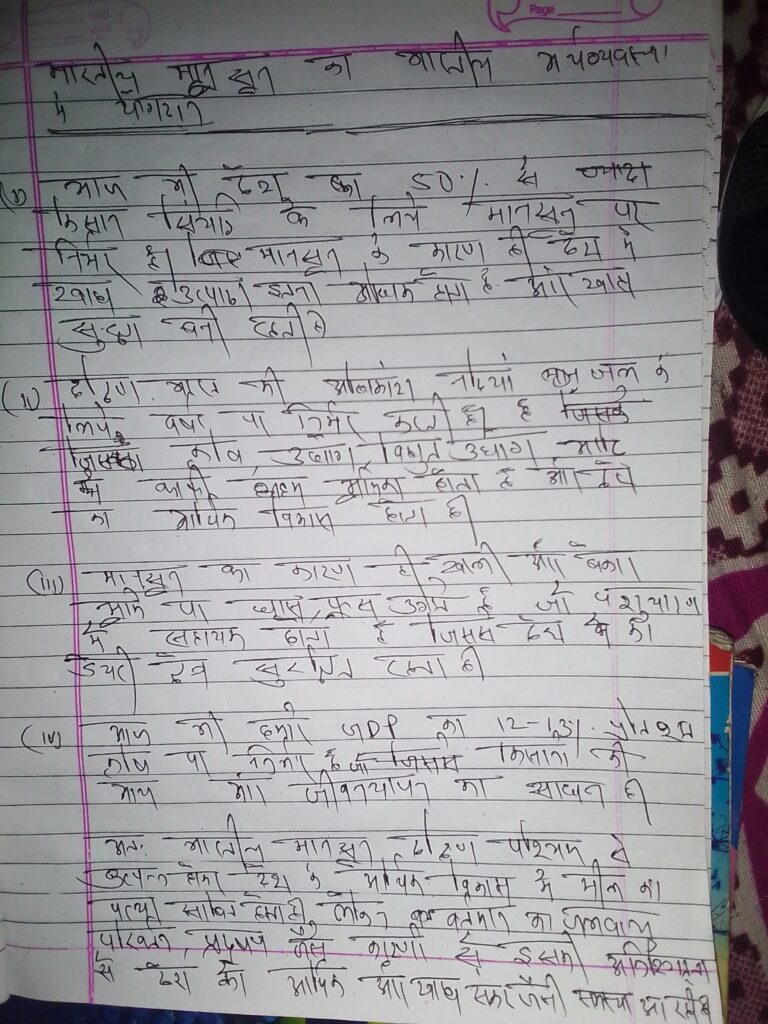 Page
भारतीय मानसून का भारतीय अर्थव्यवस्था
में योगदान
(i) आज भी देश का 50% से ज्यादा
किसान सिंचाई के लिये मानसून पर
निर्भर है। मानसून के कारण ही देश में
खाद्य उत्पादन इतना अधिक होता है और खाद्य
सुरक्षा बनी रहती है
(ii) दक्षिण भारत की अधिकांश नदियां जल के
लिये वर्षा पर निर्भर करती है जिसके
कृषि, उद्योग, विद्युत उद्योग आदि
में काफी अहम भूमिका होता है और देश
का आर्थिक विकास होता है।
(iii) मानसून का कारण ही खाली और बेकार
भूमि पर घास, फूस उगते है जो पशुपालन
में सहायक होता है जिससे देश की
डेयरी सुरक्षित रहता है।
(iv) आज भी हमारी GDP का 12-13% प्रतिशत
कृषि पर निर्भर है जिससे किसानों की
आय और जीवनयापन का साधन है।
अतः भारतीय मानसून दक्षिण पश्चिम से
उत्पन्न होकर देश के आर्थिक विकास में मील का
पत्थर साबित होता है, लेकिन वर्तमान का जलवायु
परिवर्तन, प्रदूषण जैसे कारणों से इसकी अनिश्चितता
से देश को आर्थिक और खाद्य संकट जैसी समस्या आ